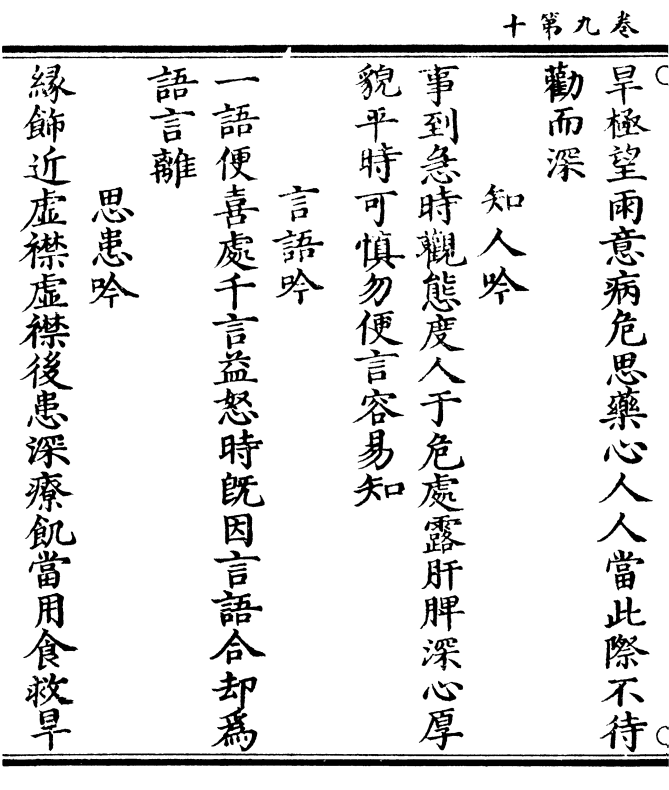 十第九卷
旱極望雨意病危思藥心人人當此際不待
勸而深
知人吟
事到急時觀態度人于危處露肝脾深心厚
貌平時可慎勿便言容易知
言語吟
一語便喜處千言益怒時既因言語合却為
語言離
思患吟
緣飾近虛襟虛襟後患深療飢當用食救旱